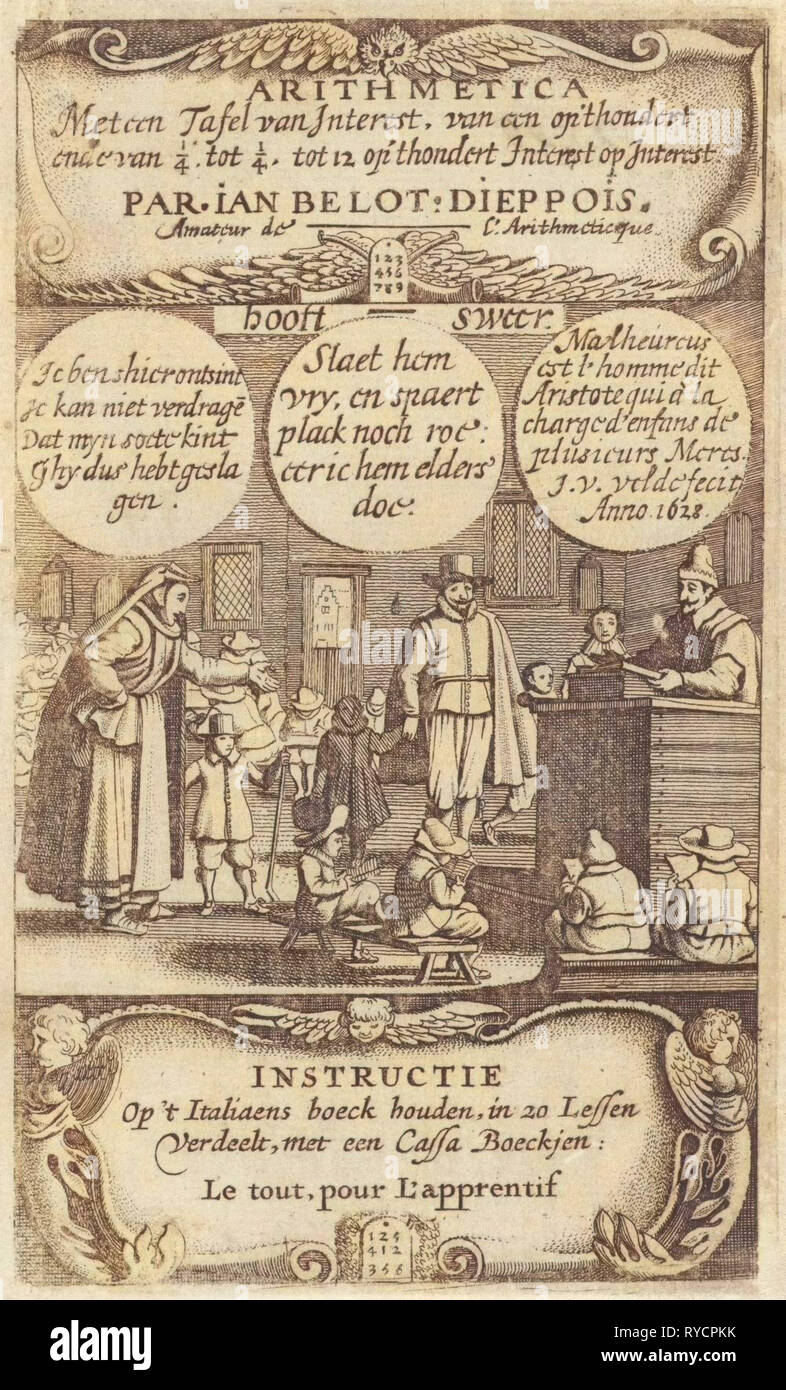 ARITHMETICA
Met een Tafel van Interest, van een op't hondert
ende van 1/4. tot 1/4. tot 12 op't hondert Interest op Interest
PAR. IAN BELOT: DIEPPOIS.
Amateur de L'Arithmeticque.
123
456
789
hooft — sweer.
Ic ben shier ontsint
Ic kan niet verdragē
Dat myn soete kint
Ghy dus hebt gesla
gen.
Slaet hem
vry, en spaert
plack noch roe:
eer ic hem elders
doe.
Malheureus
est l'homme dit
Aristote qui à la
charge d'enfans de
plusieurs Meres.
J. v. velde fecit
Anno. 1628.
INSTRUCTIE
Op 't Italiaens boeck houden, in 20 Lessen
Verdeelt, met een Cassa Boeckjen:
Le tout, pour L'apprentif
125
412
356
alamy
Image ID: RYCPKK
www.alamy.com